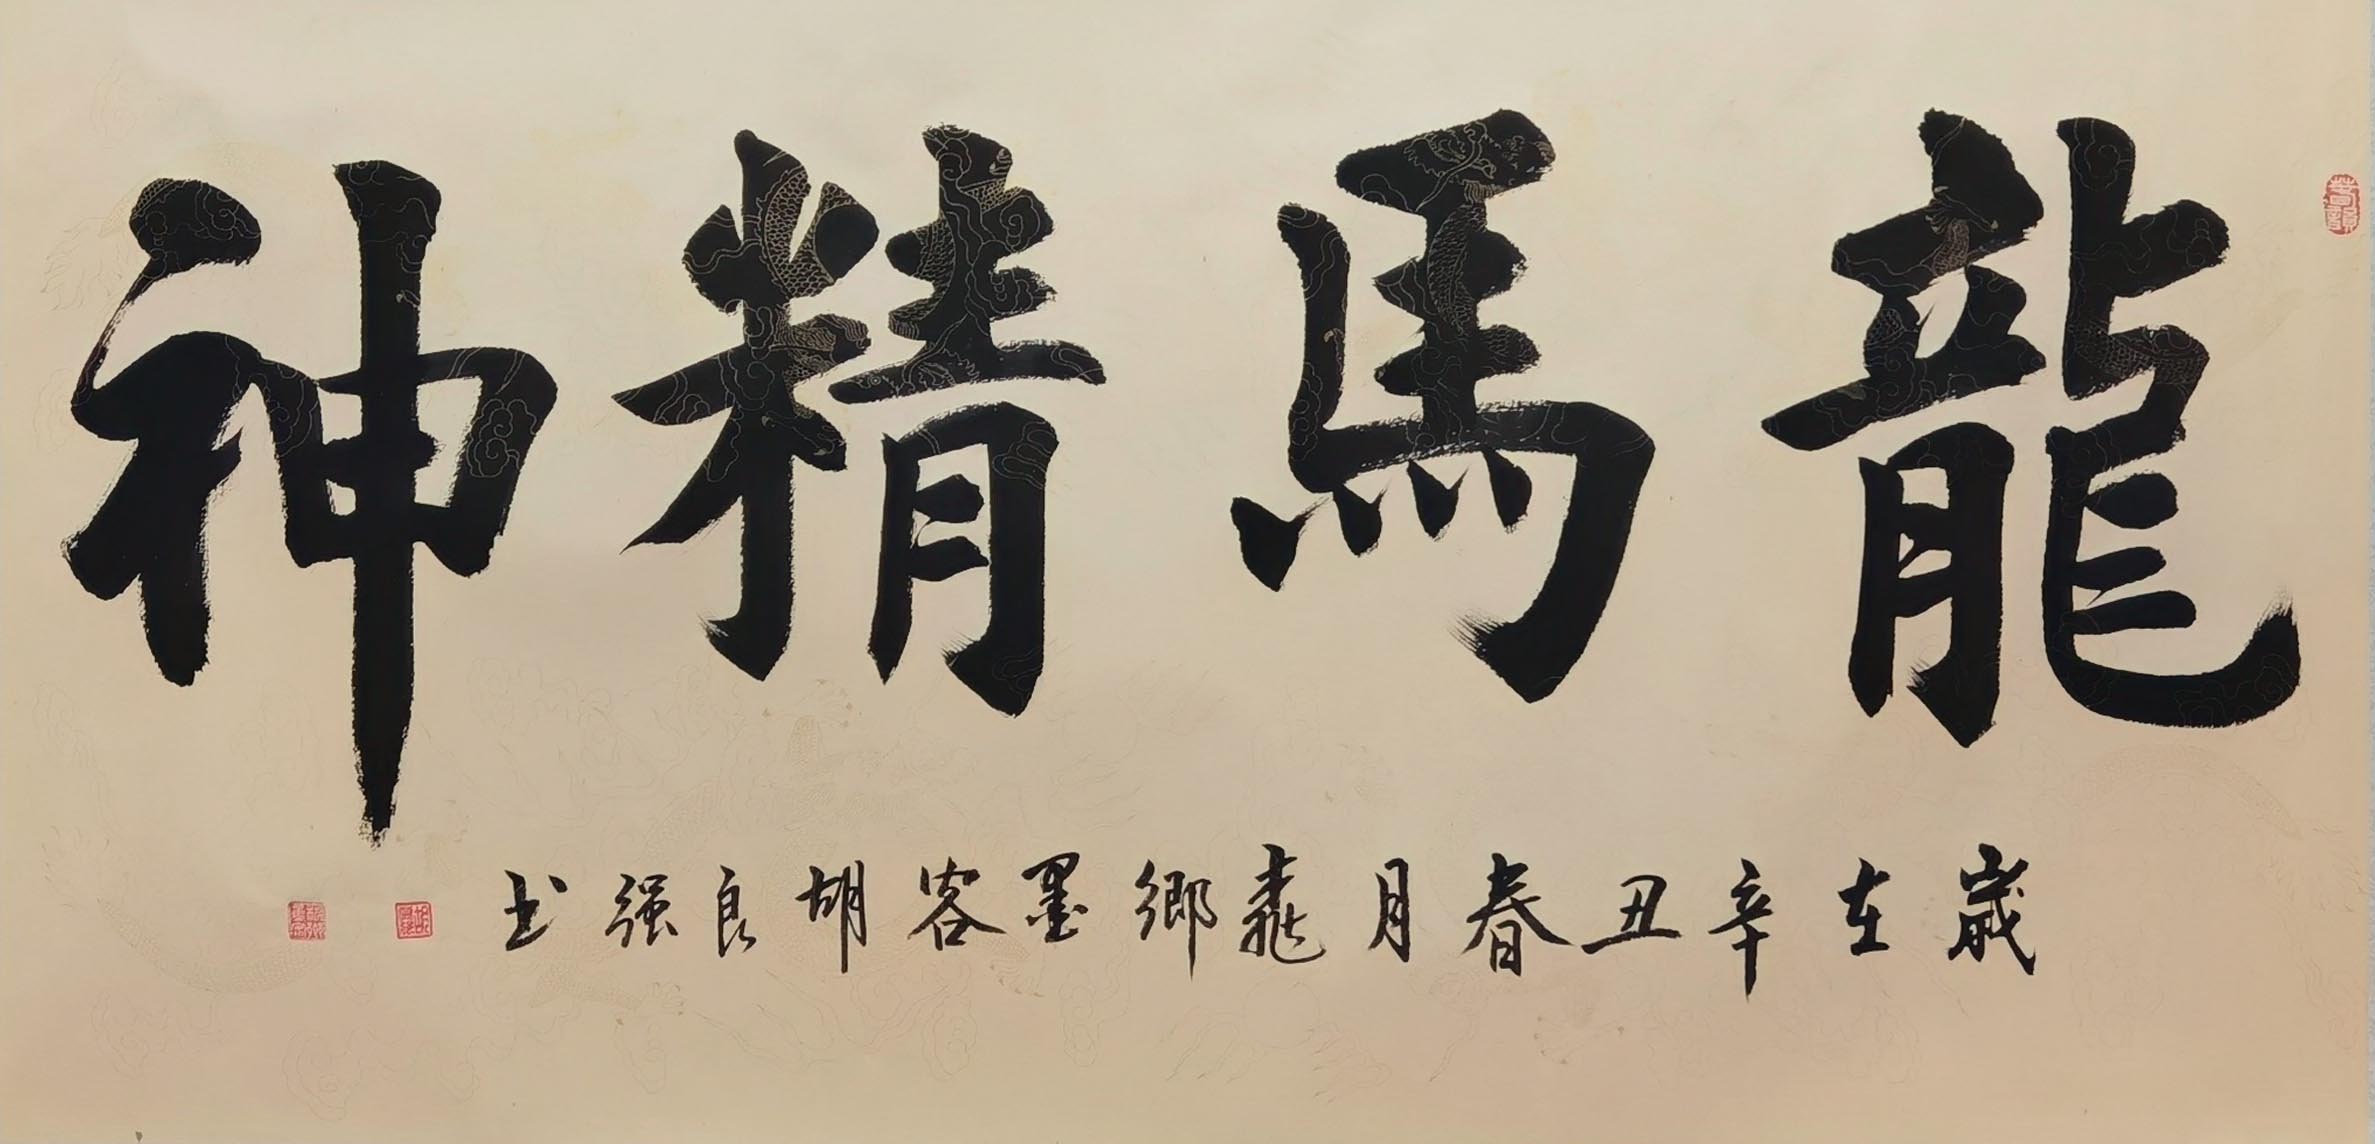 龍馬精神
歲在辛丑春月鄉墨客胡良强书